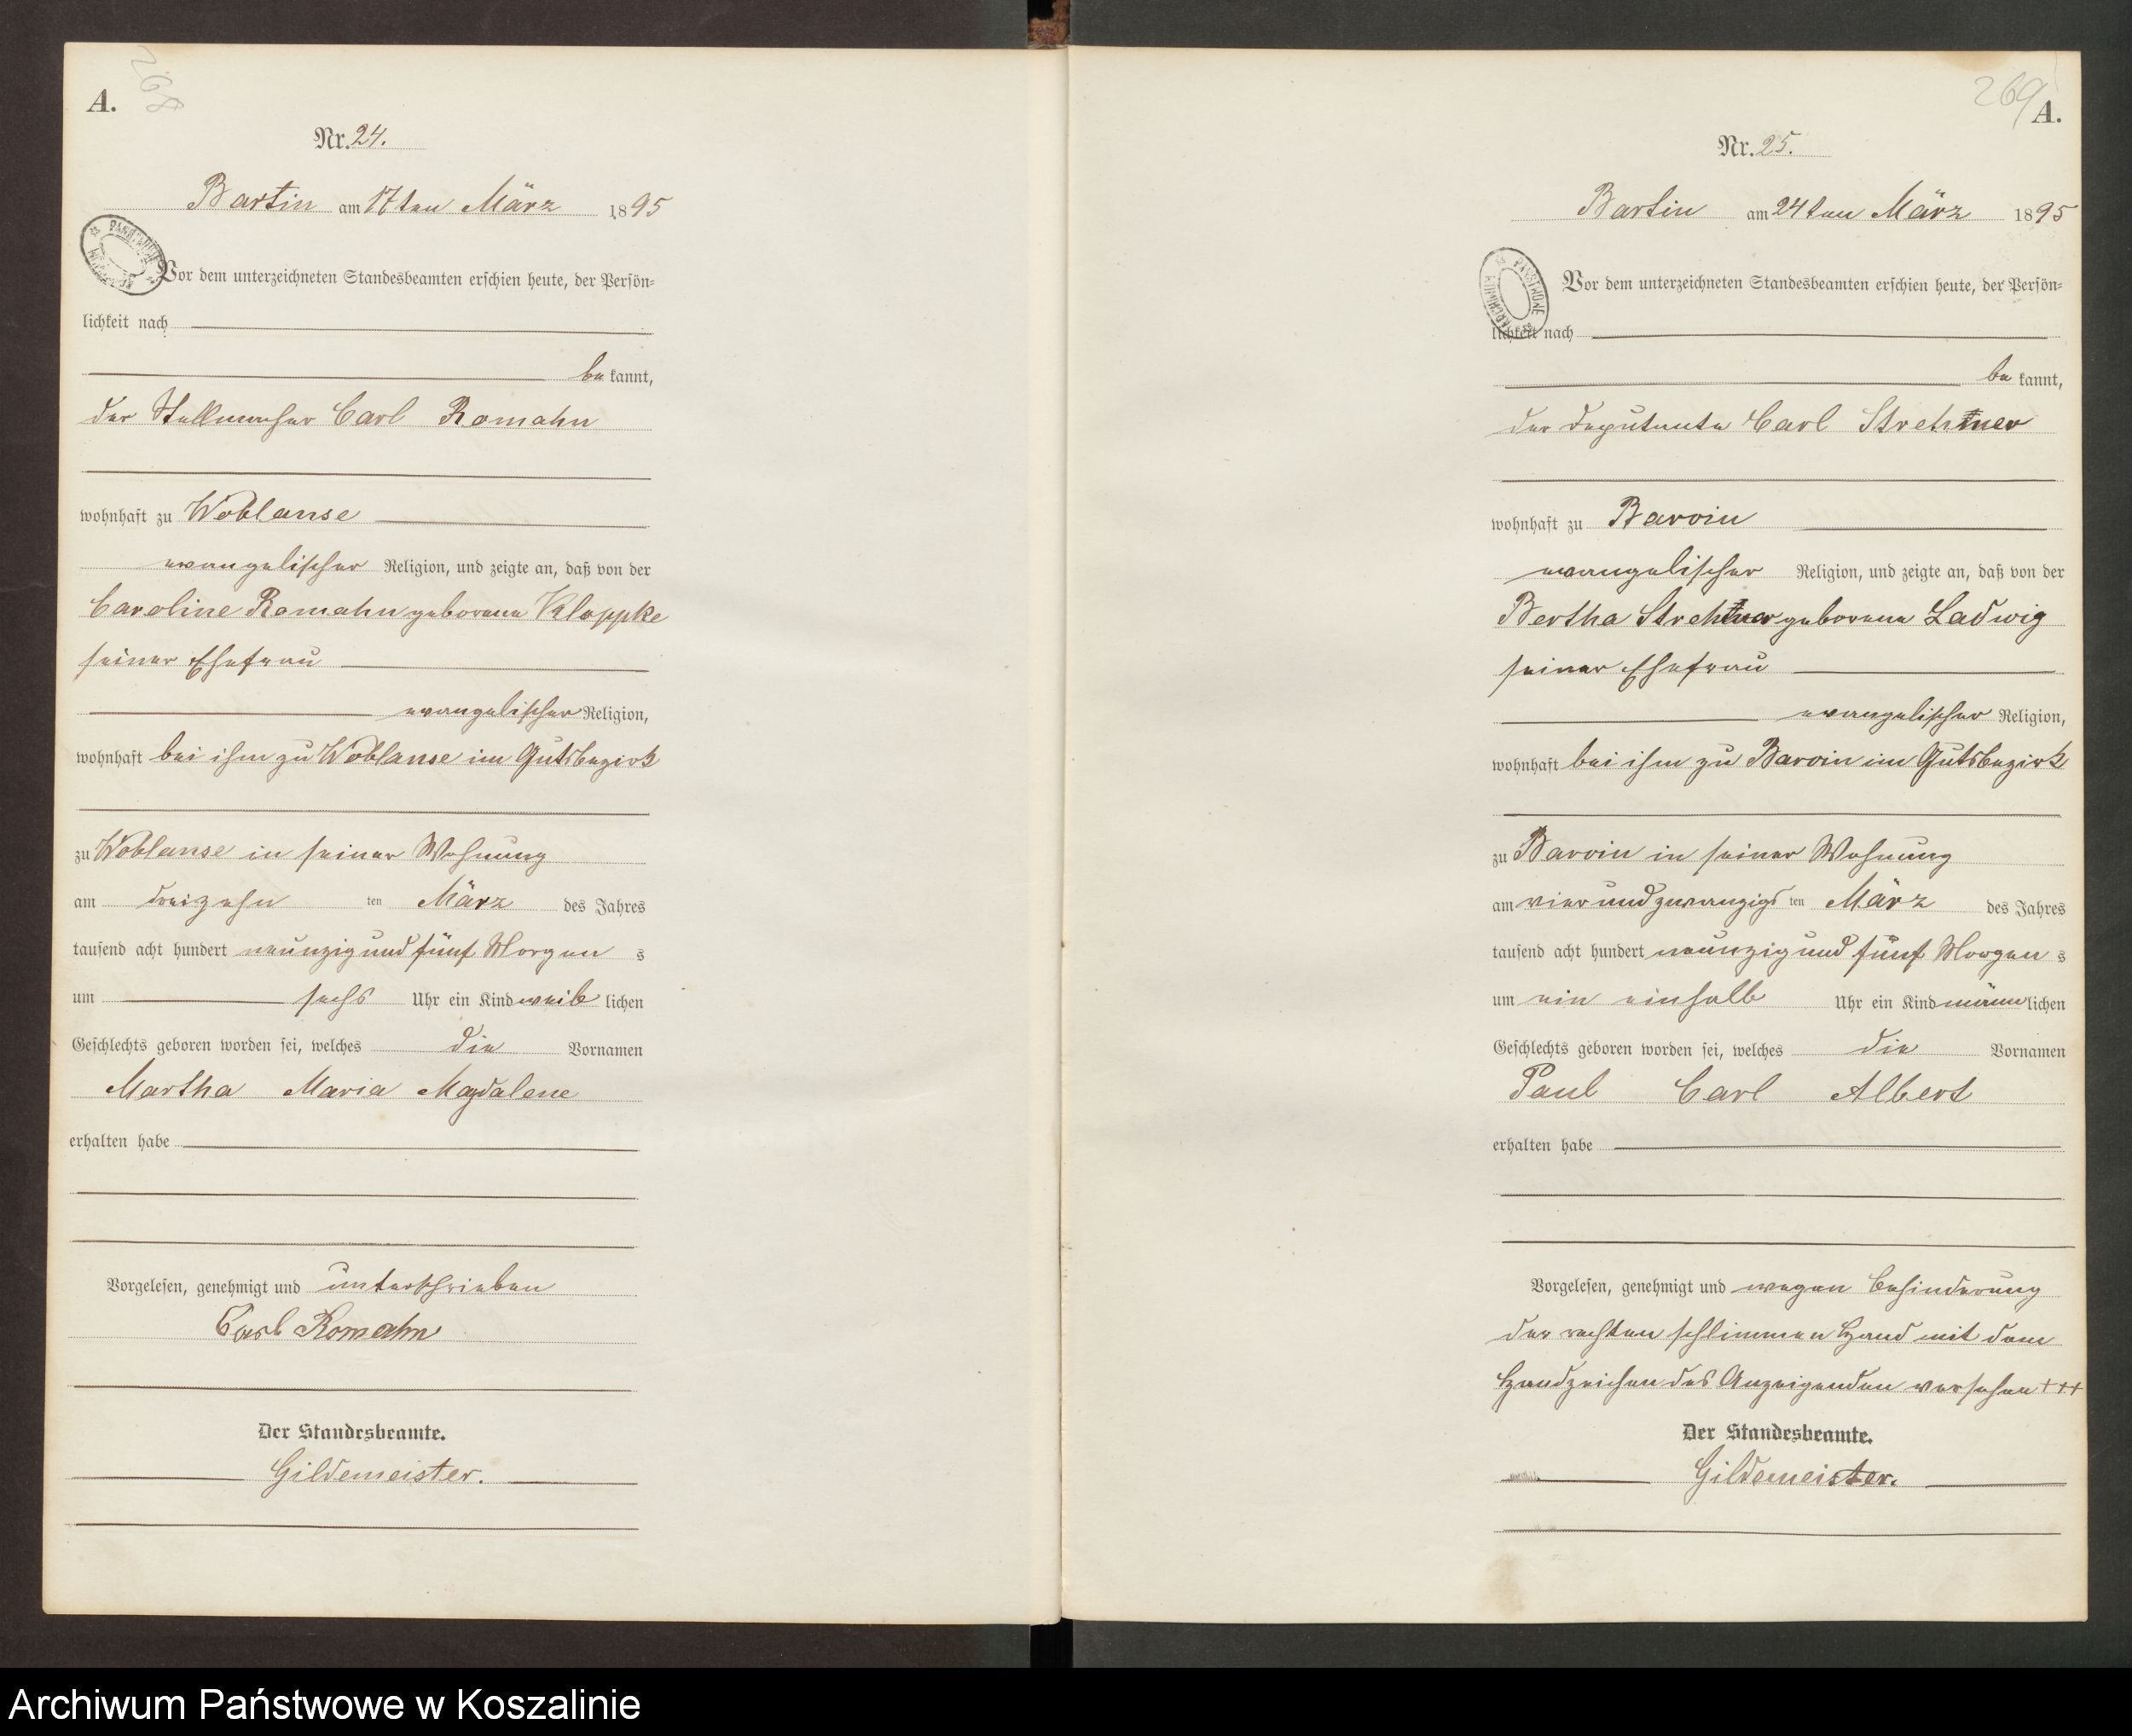 A.
268
Nr. 24.
Bartin am 17ten März 1895
Vor dem unterzeichneten Standesbeamten erschien heute, der Persön-
lichkeit nach
be kannt,
der Stellmacher Carl Romahn
wohnhaft zu Woblanse
evangelischer Religion, und zeigte an, daß von der
Caroline Romahn geborene Kloppke
seiner Ehefrau
evangelischer Religion,
wohnhaft bei ihm zu Woblanse im Gutsbezirk
zu Woblanse in seiner Wohnung
am dreizehn ten März des Jahres
tausend acht hundert neunzig und fünf Morgen s
um sechs Uhr ein Kind weib lichen
Geschlechts geboren worden sei, welches die Vornamen
Martha Maria Magdalene
erhalten habe
Vorgelesen, genehmigt und unterschrieben
Carl Romahn
Der Standesbeamte.
Gildemeister.
269
A.
Nr. 25.
Bartin am 24ten März 1895
PAŃSTWOWE ARCHIWUM
Vor dem unterzeichneten Standesbeamten erschien heute, der Persön-
lichkeit nach
be kannt,
der Deputante Carl
wohnhaft zu Barvin
evangelischer Religion, und zeigte an, daß von der
Bertha geborene Ladwig
seiner Ehefrau
evangelischer Religion,
wohnhaft bei ihm zu Barvin im Gutsbezirk
zu Barvin in seiner Wohnung
am vierundzwanzigs ten März des Jahres
tausend acht hundert neunzig und fünf Morgen s
um ein einhalb Uhr ein Kind männ lichen
Geschlechts geboren worden sei, welches die Vornamen
Paul Carl Albert
erhalten habe
Vorgelesen, genehmigt und wegen Behinderung
der rechten schlimmen Hand mit dem
Handzeichen des Anzeigenden versehen +++
Der Standesbeamte.
Gildemeister.
Archiwum Państwowe w Koszalinie